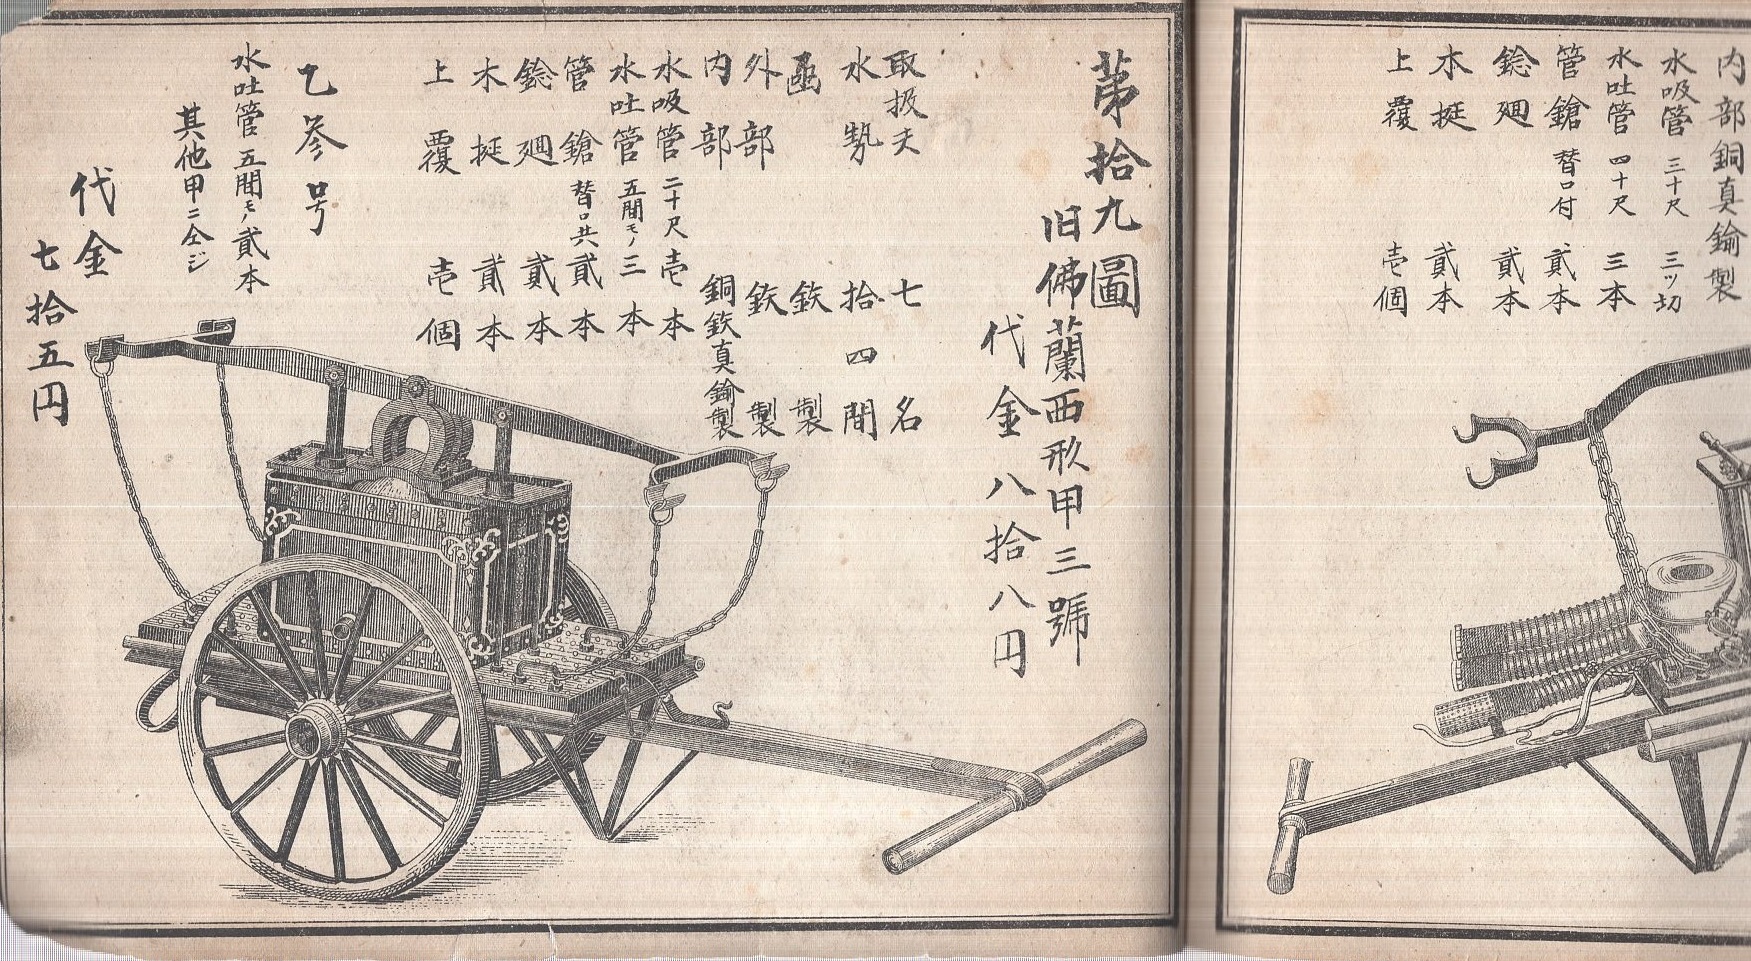 内部銅真鍮製
水吸管 三十尺 三ッ切
水吐管 四十尺 三本
管鎗 替口付 貳本
錜廻 貳本
木挺 貳本
上覆 壱個
第拾九圖
旧佛蘭西形甲三號
代金八拾八円
取扱夫 七名
水勢 拾四間
凾 鉄製
外部 鉄製
内部 銅鉄真鍮製
水吸管 二十尺 壱本
水吐管 五間モノ 三本
管鎗 替口共 貳本
錜廻 貳本
木挺 貳本
上覆 壱個
乙参号
水吐管 五間モノ 貳本
其他甲ニ仝ジ
代金
七拾五円